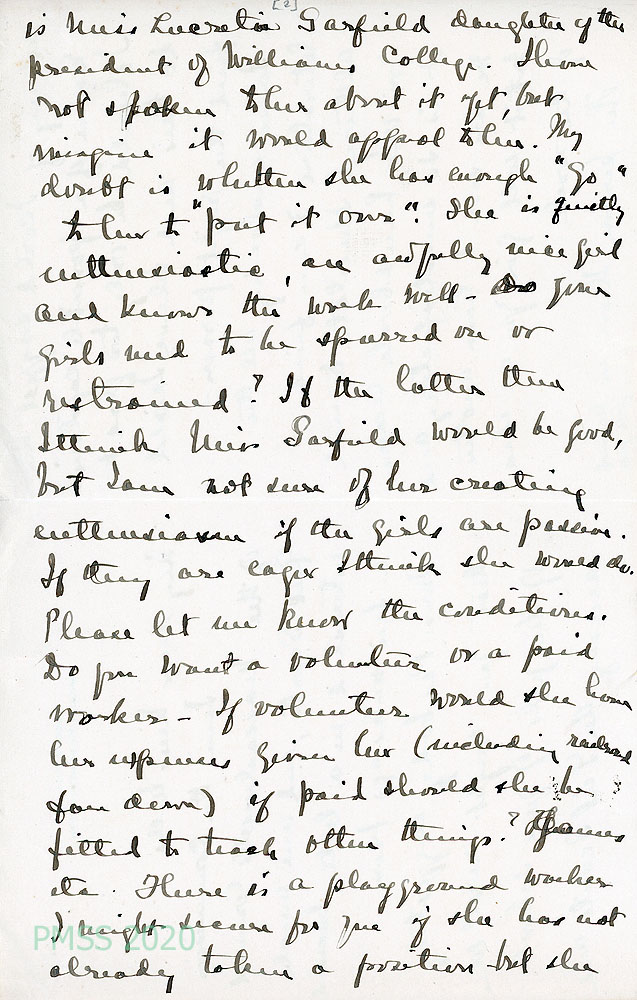 [2]
is Miss Lucretia Garfield daughter of the
president of Williams College. I have
not spoken to her about it yet, but
imagine it would appeal to her. My
doubt is whether she has enough "Go"
to her to "put it over". She is quietly
enthusiastic, an awfully nice girl
and knows the work well - Do your
girls need to be spurred on or
restrained? If the latter then
I think Miss Garfield would be good,
but I am not sure of her creating
enthusiasm if the girls are passive.
If they are eager I think she would do.
Please let me know the conditions.
Do you want a volunteer or a paid
worker - If volunteer would she have
her expenses given her (including railroad
fare down) if paid should she be
fitted to teach other things? Games
etc. There is a playground worker
I might secure for you if she has not
already taken a position but she
PMSS 2020